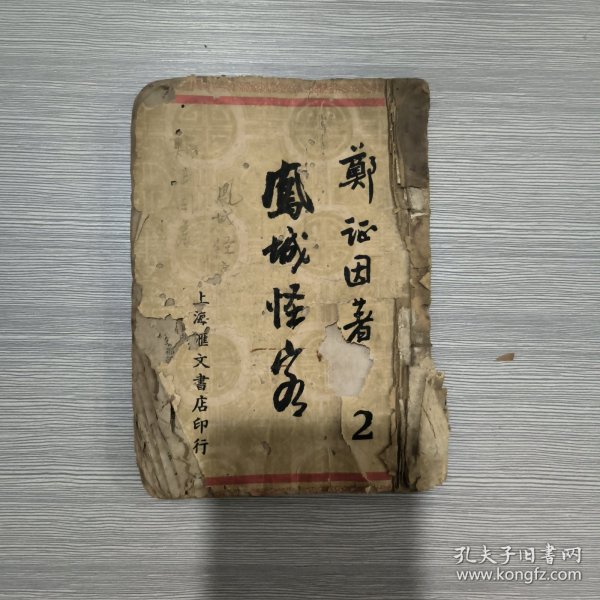 鄭証因著
2
鳳城怪客
上海匯文書店印行
孔夫子旧书网
www.kongfz.com